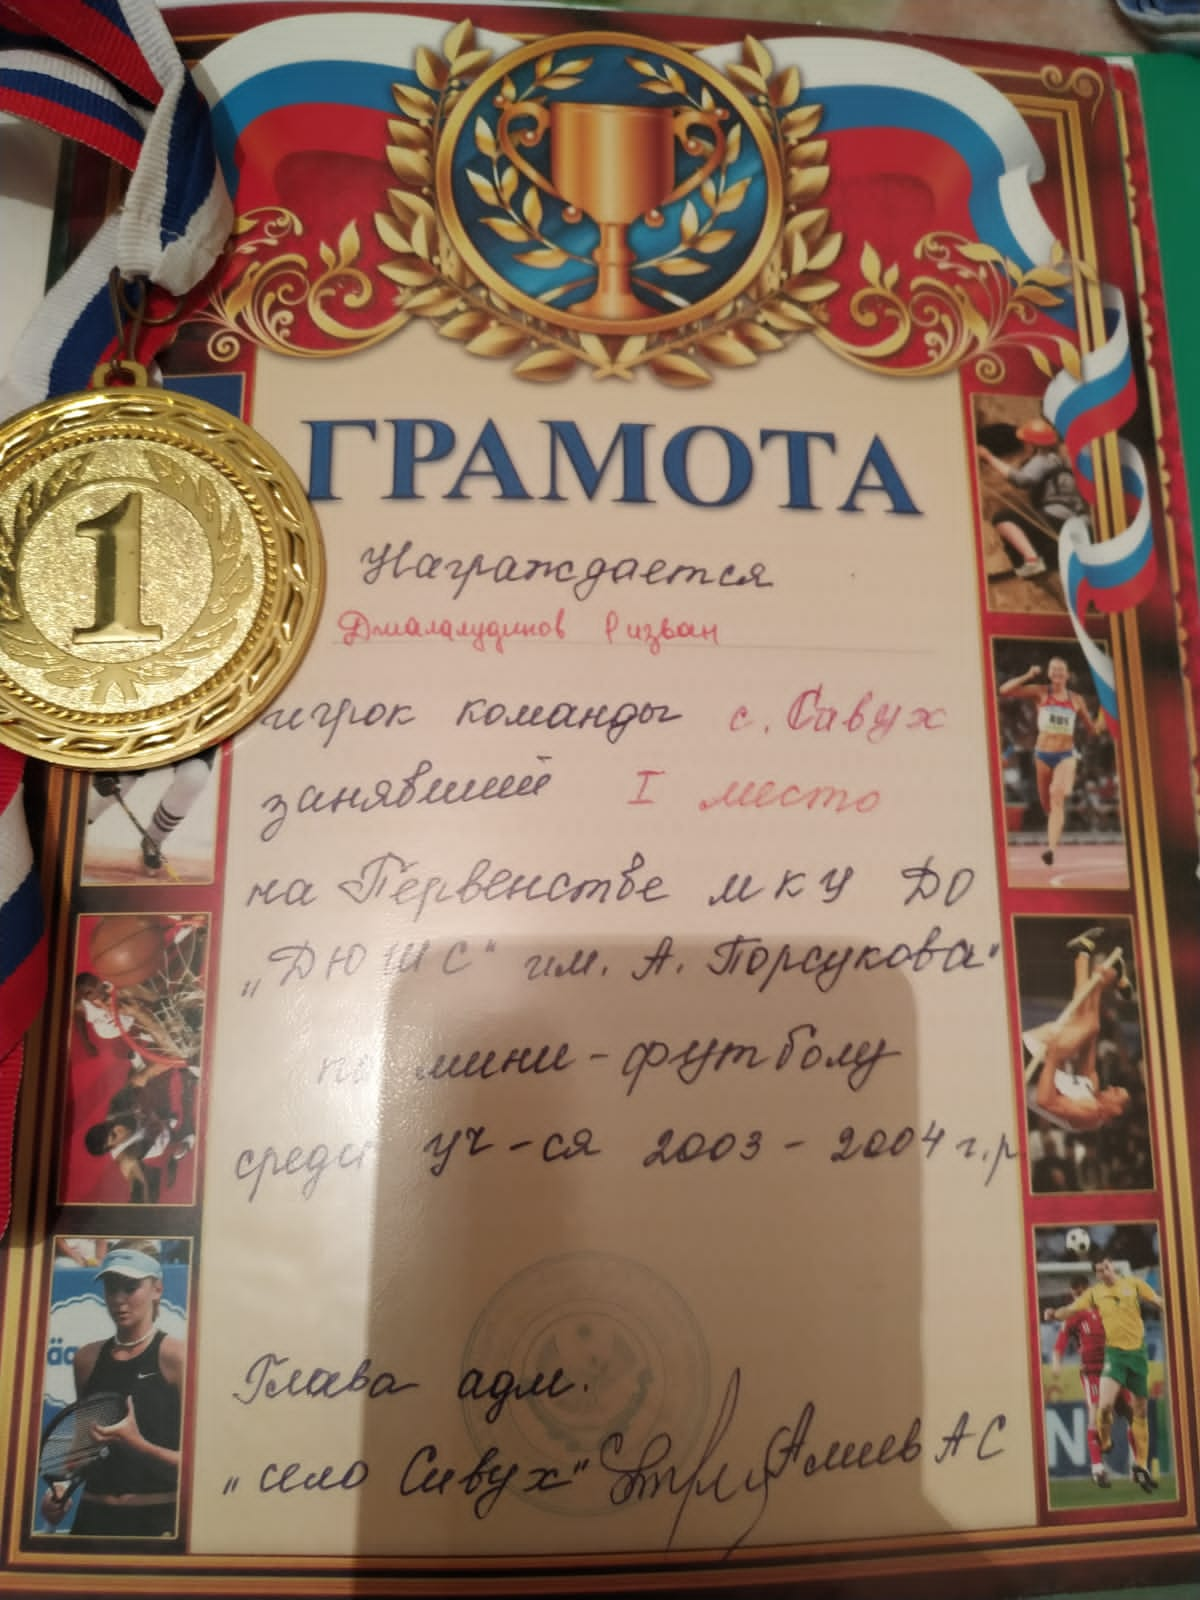 ГРАМОТА
1
Награждается
Джалалудинов Ризван
игрок команды с. Сивух
занявший I место
на Первенстве МКУ ДО
„ДЮШС" им. А. Порсукова"
по мини-футболу
среди уч-ся 2003-2004 г.р
Глава адм.
„село Сивух" Алиев АС